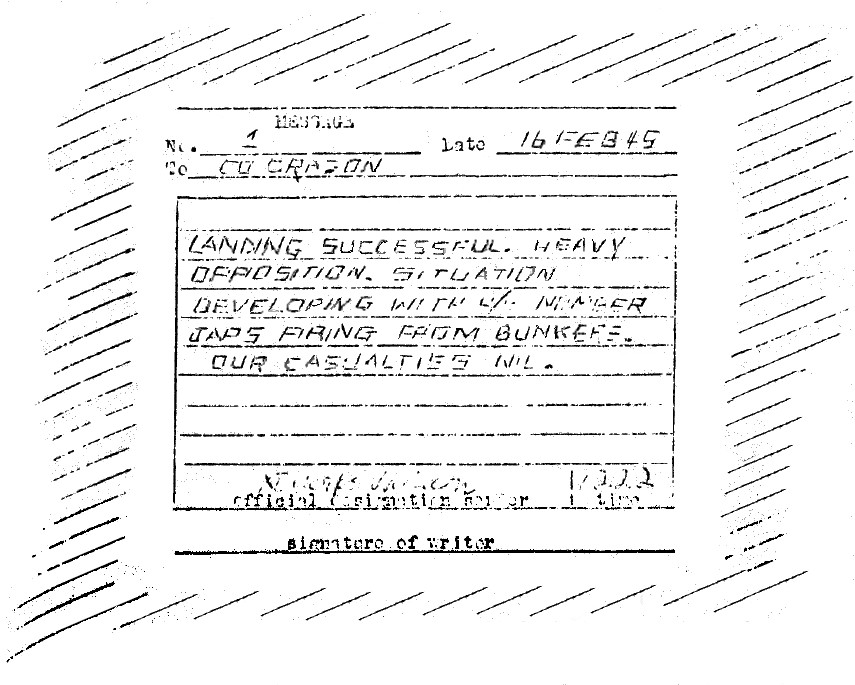 MESSAGE
No. 1 Date 16 FEB 45
To CO
LANDING SUCCESSFUL. HEAVY
OPPOSITION. SITUATION
DEVELOPING WITH NUMBER
JAPS FIRING FROM BUNKERS.
OUR CASUALTIES NIL.
1222
official designation sender time
signature of writer